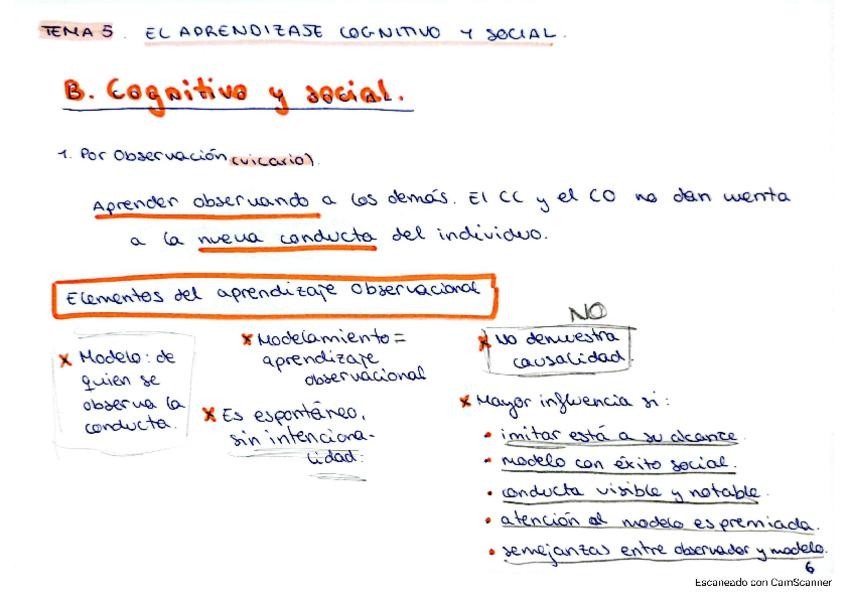 TEMA 5. EL APRENDIZAJE COGNITIVO Y SOCIAL.
B. Cognitivo y social.
1. Por Observación (vicario).
Aprender observando a los demás. El CC y el CO no dan cuenta
a la nueva conducta del individuo.
Elementos del aprendizaje observacional
x Modelo: de
quien se
observa la
conducta.
x Modelamiento =
aprendizaje
observacional
x Es espontáneo,
sin intenciona-
lidad.
NO
x No demuestra
causalidad.
x Mayor influencia si:
• imitar está a su alcance.
• modelo con éxito social.
• conducta visible y notable.
• atención al modelo es premiada.
• semejanzas entre observador y modelo.
6
Escaneado con CamScanner